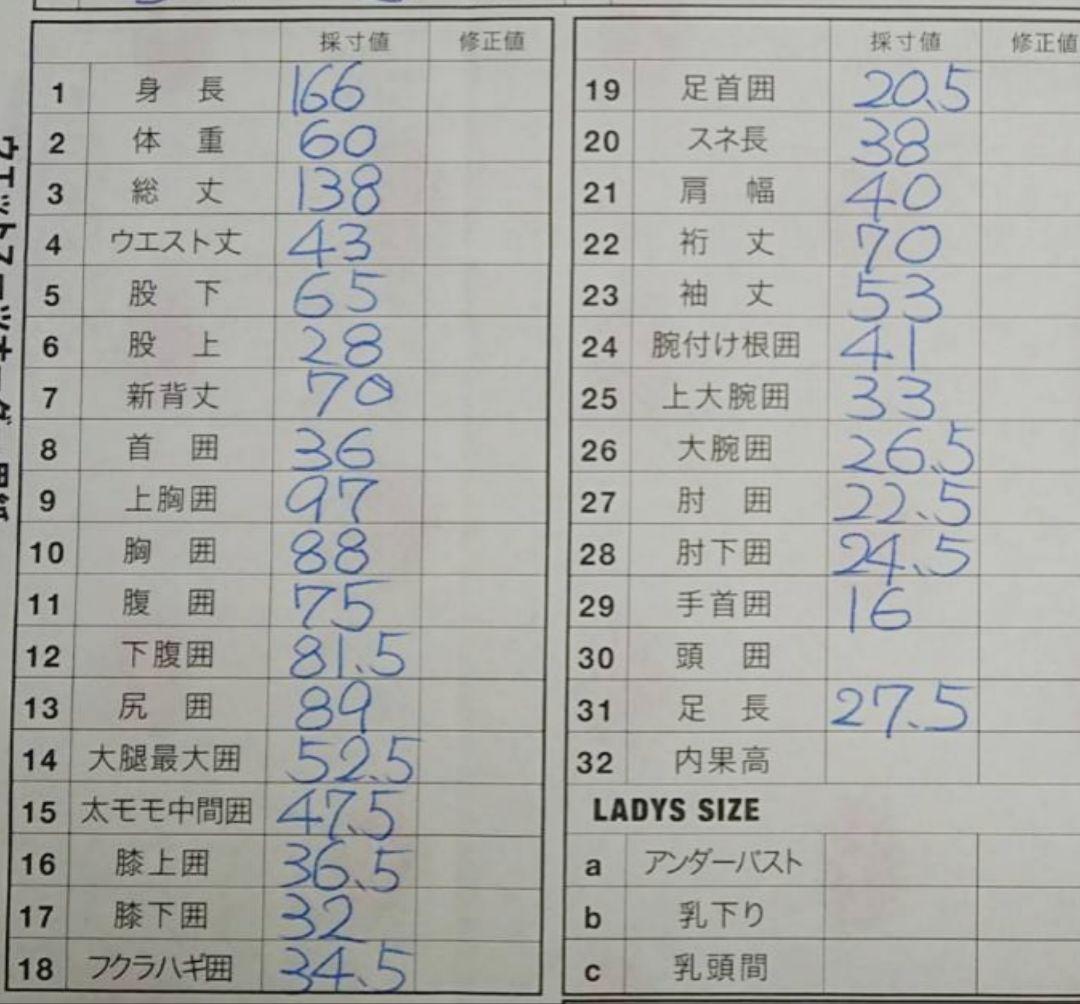 採寸値 修正値
1 身長 166
2 体重 60
3 総丈 138
4 ウエスト丈 43
5 股下 65
6 股上 28
7 新背丈 70
8 首囲 36
9 上胸囲 97
10 胸囲 88
11 腹囲 75
12 下腹囲 81.5
13 尻囲 89
14 大腿最大囲 52.5
15 太モモ中間囲 47.5
16 膝上囲 36.5
17 膝下囲 32
18 フクラハギ囲 34.5
採寸値 修正値
19 足首囲 20.5
20 スネ長 38
21 肩幅 40
22 裄丈 70
23 袖丈 53
24 腕付け根囲 41
25 上大腕囲 33
26 大腕囲 26.5
27 肘囲 22.5
28 肘下囲 24.5
29 手首囲 16
30 頭囲
31 足長 27.5
32 内果高
LADYS SIZE
a アンダーバスト
b 乳下り
c 乳頭間